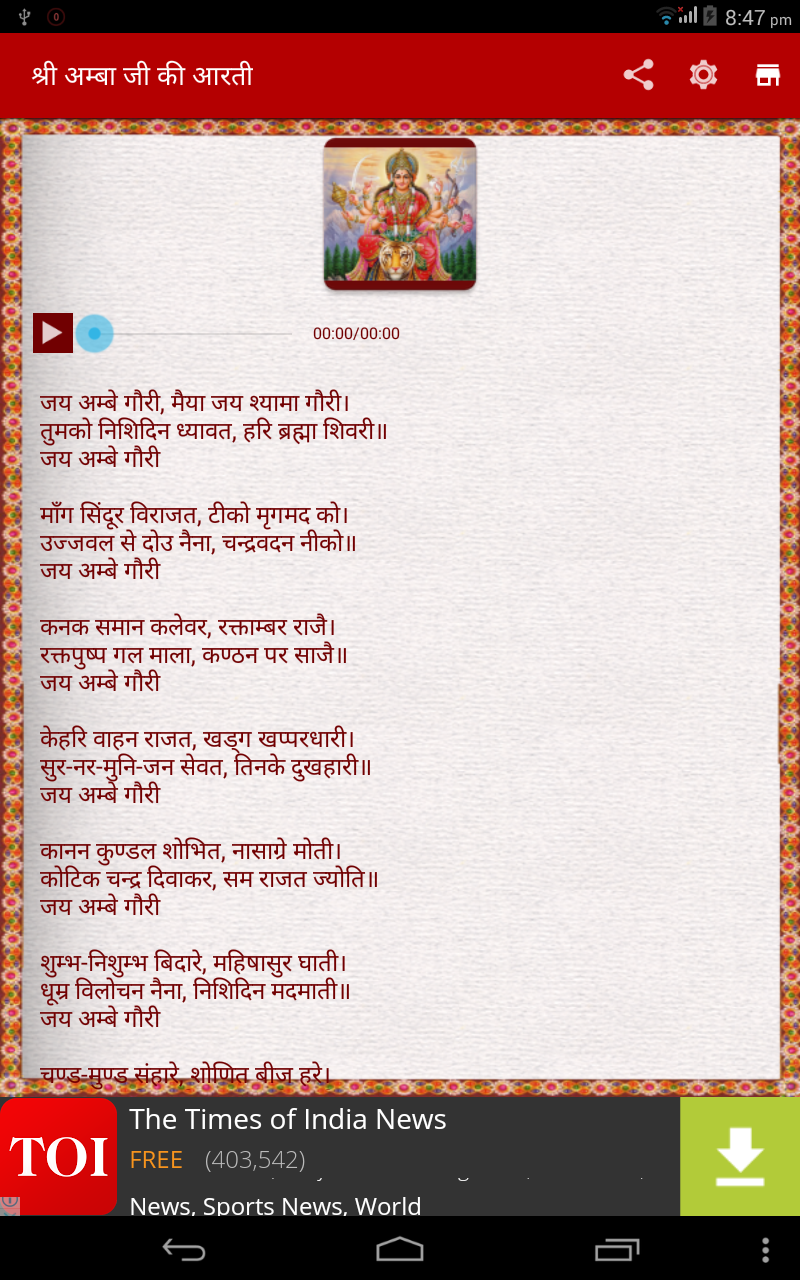 8:47 pm
श्री अम्बा जी की आरती
00:00/00:00
जय अम्बे गौरी, मैया जय श्यामा गौरी।
तुमको निशिदिन ध्यावत, हरि ब्रह्मा शिवरी॥
जय अम्बे गौरी
माँग सिंदूर विराजत, टीको मृगमद को।
उज्जवल से दोउ नैना, चन्द्रवदन नीको॥
जय अम्बे गौरी
कनक समान कलेवर, रक्ताम्बर राजै।
रक्तपुष्प गल माला, कण्ठन पर साजै॥
जय अम्बे गौरी
केहरि वाहन राजत, खड्ग खप्परधारी।
सुर-नर-मुनि-जन सेवत, तिनके दुखहारी॥
जय अम्बे गौरी
कानन कुण्डल शोभित, नासाग्रे मोती।
कोटिक चन्द्र दिवाकर, सम राजत ज्योति॥
जय अम्बे गौरी
शुम्भ-निशुम्भ बिदारे, महिषासुर घाती।
धूम्र विलोचन नैना, निशिदिन मदमाती॥
जय अम्बे गौरी
चण्ड-मुण्ड संहारे, शोणित बीज हरे।
TOI
The Times of India News
FREE (403,542)
News, Sports News, World